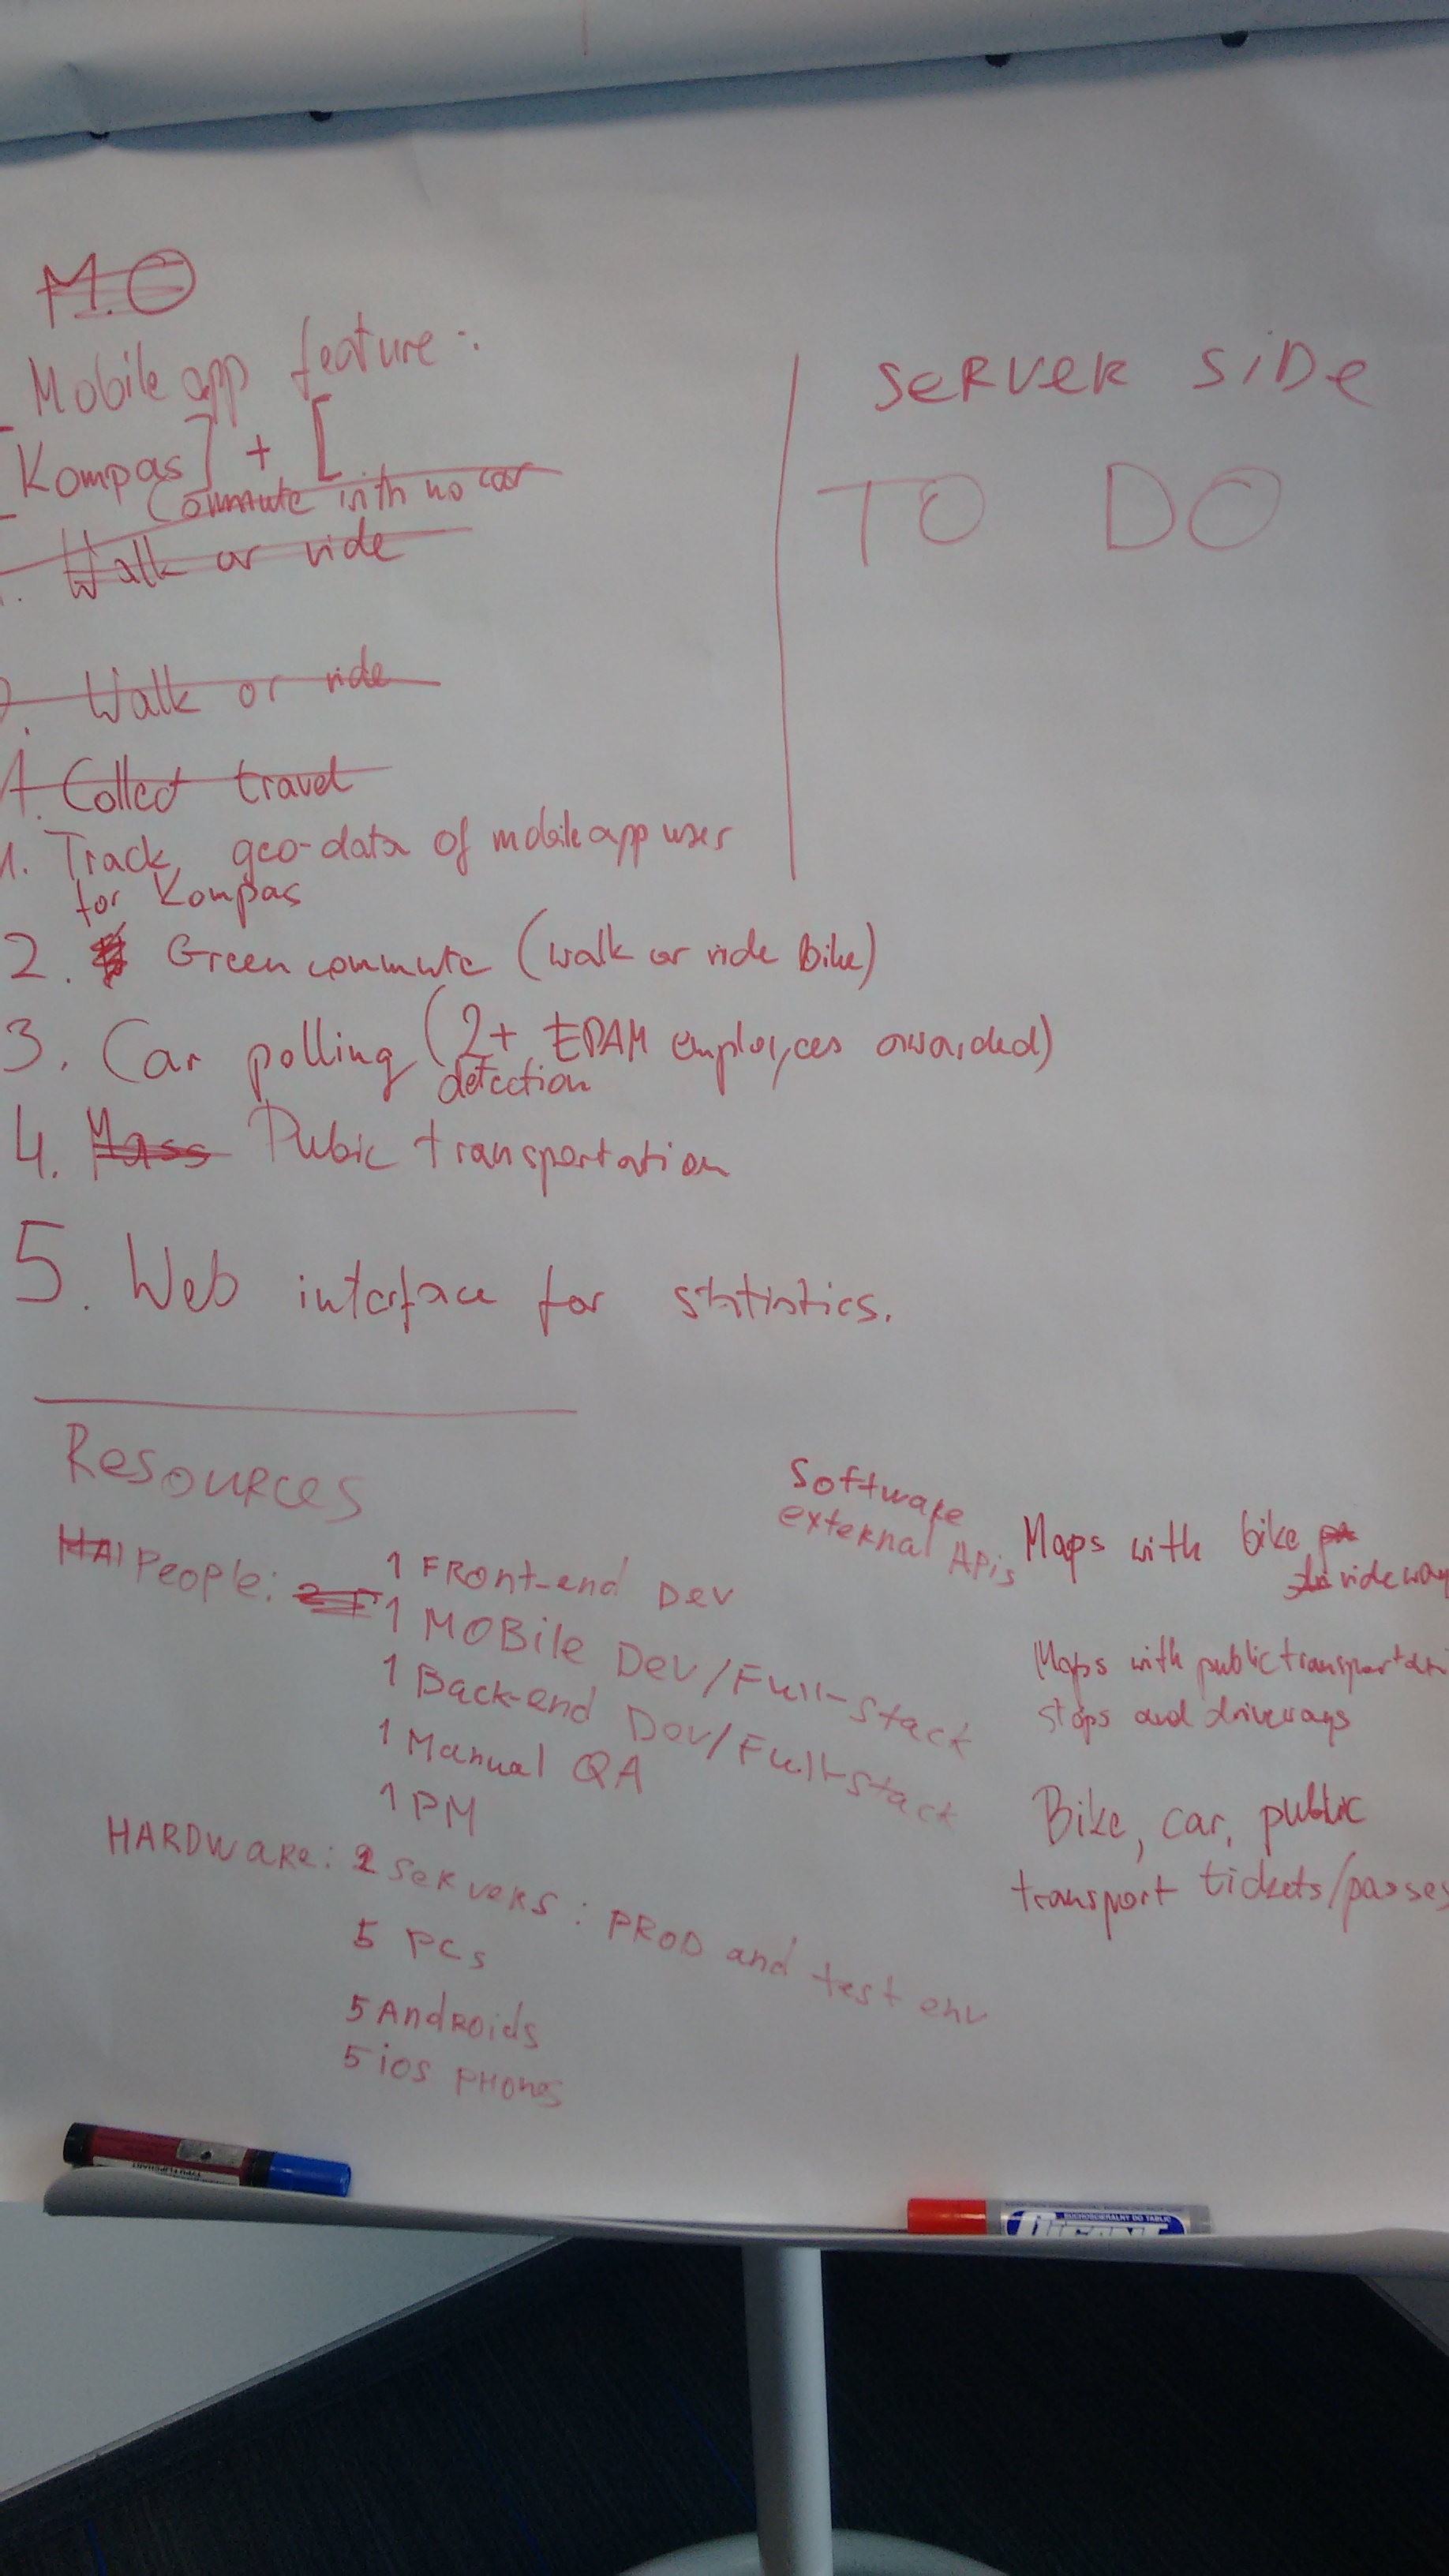 M.O
Mobile app feature:
[Kompas] + [
Commute with no car
1. Walk or ride
2. Walk or ride
1. Collect travel
1. Track geo-data of mobile app user
for Kompas
2. Green commute (walk or ride bike)
3. Car polling (2+ EPAM employees awarded)
detection
4. Mass Pubic transportation
5. Web interface for statistics.
SERVER SIDE
TO DO
Resources
People: 1 FRont-end Dev
1 MOBile Dev/Full-stack
1 Back-end Dev/Full-stack
1 Manual QA
1 PM
HARDWARE: 2 SERVERS: PROD and test env
5 PCs
5 AndRoids
5 iOS PHones
Software
external APis
Maps with bike
rideway
Maps with public transportati
stops and driveways
Bike, car, public
transport tickets/passes
SUCHOŚCIERALNY DO TABLIC